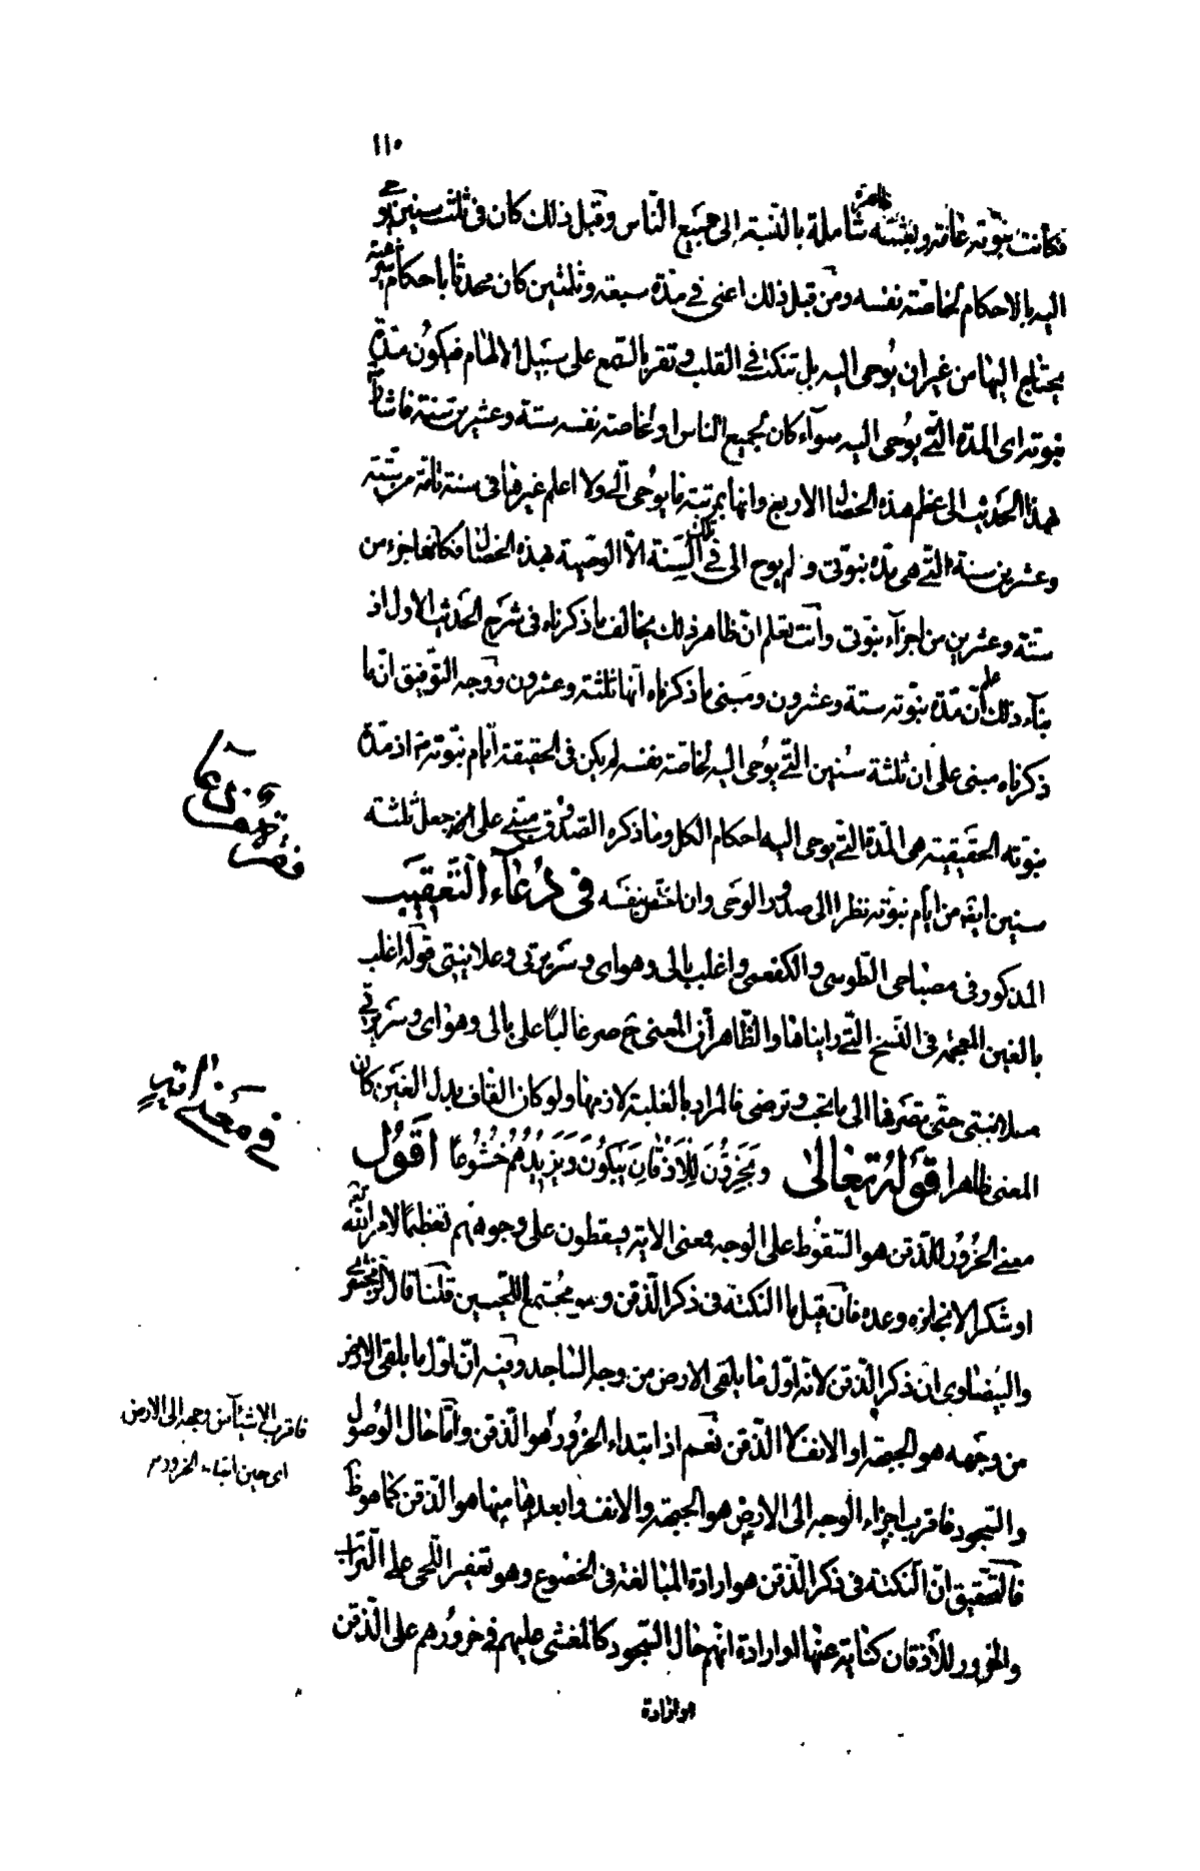 ١١٠
فكانت نبوّته عامّة وبعثته ظاهرة شاملة بالنّسبة إلى جميع النّاس وقبل ذلك كان في ثلث سنين يوحى
اليه بالاحكام لخاصّة نفسه ومن قبل ذلك اعنى في مدّة سبعة وثلثين كان محدثا باحكام شرعيّة
يحتاج اليها من غير ان يوحى اليه بل تنكت في القلب وتقر بالسّمع على سبيل الالهام فيكون مدّة
نبوته اى المدة الّتي يوحى اليه سوآء كان لجميع الناس او لخاصة نفسه ستة وعشرين سنة فاشار
بهذا الحديث الى عظم هذه الخصال الاربع وانها بمرتبة ما يوحى الىّ ولا اعلم غيرها في سنة تامّة من ستّة
وعشرين سنة الّتي هى مدّة نبوّتى ولم يوح الى في تلك السّنة الّا الوصية بهذه الخصال فكانها جزء من
ستّة وعشرين من اجزآء نبوّتى وأنت تعلم انّ ظاهر ذلك يخالف ما ذكرناه في شرح الحديث الاول اذ
بنآء ذلك على أنّ مدّة نبوّته ستة وعشرون ومبنى ما ذكرناه انّها ثلثة وعشرون ووجه التوفيق انّ ما
ذكرناه مبنى على ان ثلثة سنين الّتي يوحى اليه لخاصّة نفسه لم يكن في الحقيقة ايّام نبوّته اذ مدّة
نبوّته الحقيقية هى المدّة الّتي يوحى اليه احكام الكل وما ذكره الصدوق مبنى على انه جعل ثلثة
سنين ايضه من ايّام نبوّته نظرا الى صدور الوحى وان اختصّ بنفسه في دعآء التّعقيب
المذكور في مصباحى الطّوسى والكفعمى واغلب بالى وهواى وسريرتى وعلانيتى قوله اغلب
بالغين المعجمة في النّسخ الّتي رايناها والظّاهر أنّ المعنى ح صر غالبًا على بالى وهواى وسريرتى
وعلانيتى حتّى تصرفها الى ما تحبّ وترضى فالمراد بالغلبة لازمها ولو كان القاف بدل الغين كان
المعنى ظاهرا قوله تعالى ويخرّون للاذقان يبكون ويزيدهم خشوعًا اقول
معنى الخرور للذّقن هو السّقوط على الوجه فمعنى الاية يسقطون على وجوههم تعظيمًا لامر اللّه
او شكرا لانجازه وعده فان قيل ما النكتة في ذكر الذّقن وهو مجتمع اللّحيين قلنا قال الزّمخشرى
والبيضاوى ان ذكر الذّقن لانّه اوّل ما يلقى الارض من وجه السّاجد وفيه انّ اوّل ما يلقى الارض
من وجهه هو الجبهة او الانف لا الذّقن نعم اذا ابتداء الخرور هو الذّقن وامّا حال الوصول
والسّجود فاقرب اجزاء الوجه الى الارض هو الجبهة والانف وابعدها منها هو الذّقن كما هو ظ
فالتّحقيق انّ النّكتة في ذكر الذّقن هو ارادة المبالغة في الخضوع وهو تعفير اللّحى على التّراب
والخرور للأذقان كناية عنها او ارادة انّهم حال السّجود كالمغشى عليهم في خرورهم على الذّقن
او ارادة
في معنى اية
فاقرب الاشيآء من وجهه الى الارض
اى حين ابتداء الخرور